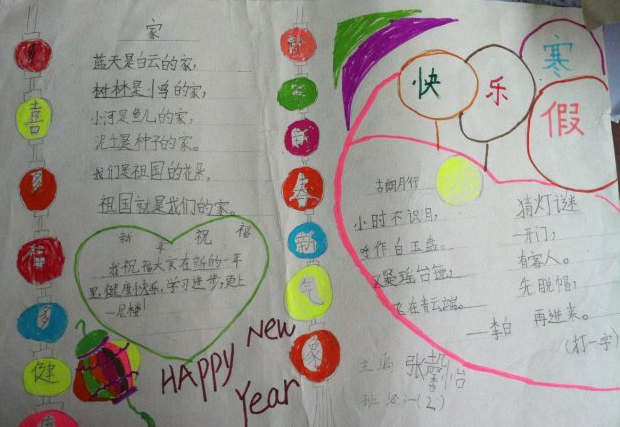 家
蓝天是白云的家,
树林是小鸟的家,
小河是鱼儿的家,
泥土是种子的家。
我们是祖国的花朵,
祖国就是我们的家。
喜
福
多
健
新
年
新
春
新
气
象
新年祝福
我祝福大家在新的一年
里,健康快乐,学习进步,更上
一层楼!
HAPPY New
Year
快乐
寒
假
古朗月行
小时不识月,
呼作白玉盘。
又疑瑶台镜,
飞在青云端。
李白
猜灯谜
一开门,
有客人。
先脱帽,
再进来。
(打一字)
主编
班级:一(2)